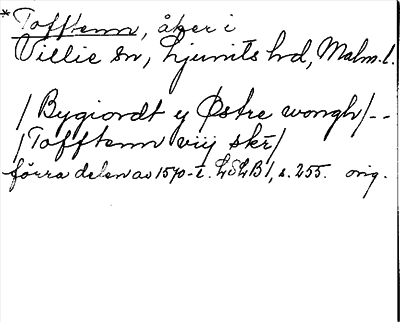 *Tofften, åker i
Villie sn, Ljunits hd, Malm. l.
/Bygiordt y Østre wongh/--
/Tofftenn viij skr/
förra delen av 1570-t. LSLB 1, s. 255. orig.